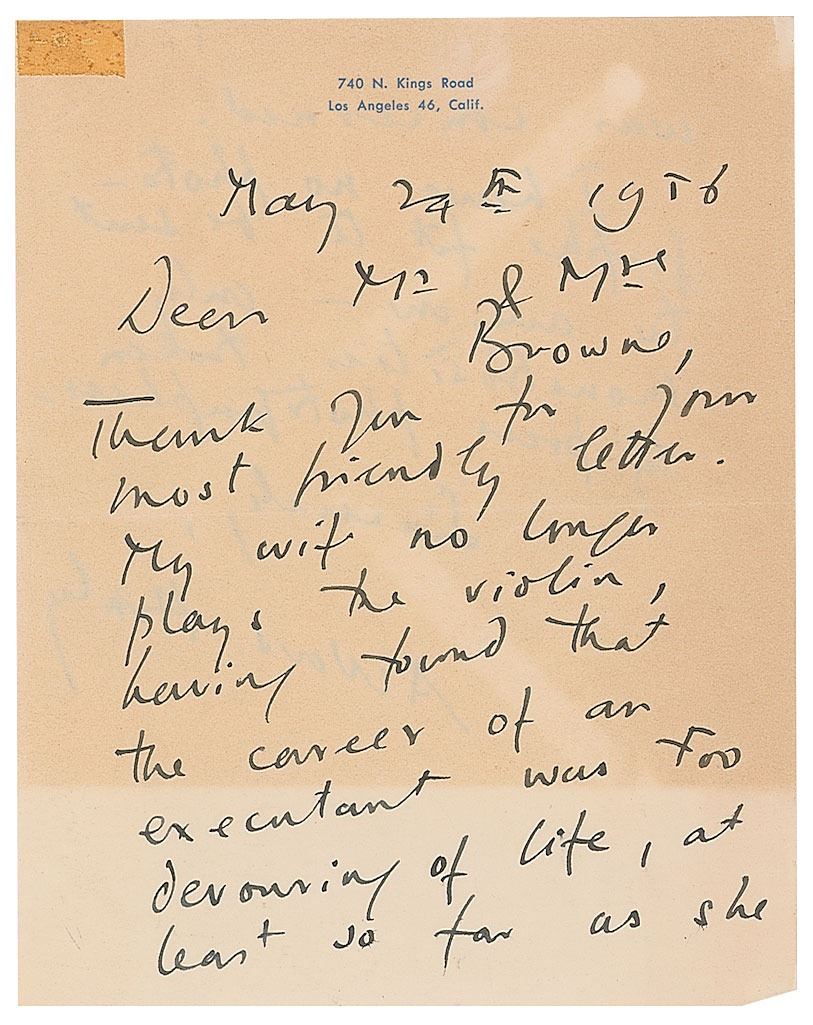 740 N. Kings Road
Los Angeles 46, Calif.
May 24th 1956
Dear Mr & Mrs
Browne,
Thank you for your
most friendly letter.
My wife no longer
plays the violin,
having found that
the career of an
executant was too
devouring of life, at
least so far as she